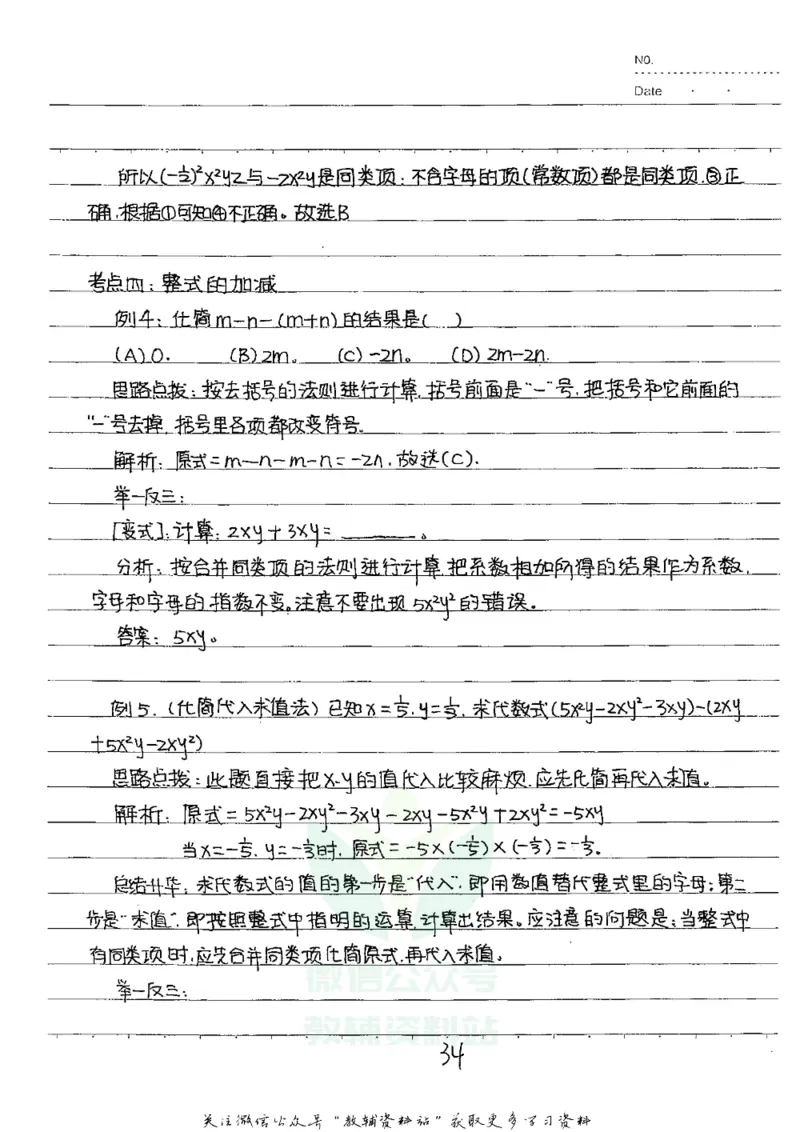 NO.
Date
所以(-½)²x²yz与-2x²y是同类项:不含字母的项(常数项)都是同类项.③正
确,根据①可知④不正确。故选B
考点四:整式的加减
例4:化简m-n-(m+n)的结果是( )
(A)0. (B)2m。 (C)-2n。 (D)2m-2n.
思路点拨:按去括号的法则进行计算,括号前面是"-"号,把括号和它前面的
"-"号去掉,括号里各项都改变符号.
解析:原式=m-n-m-n=-2n.故选(C).
举一反三:
[变式]:计算:2xy+3xy=______。
分析:按合并同类项的法则进行计算,把系数相加所得的结果作为系数,
字母和字母的指数不变。注意不要出现5x²y²的错误。
答案:5xy。
例5.(化简代入求值法)已知x= .y= ,求代数式(5x²y-2xy²-3xy)-(2xy
+5x²y-2xy²)
思路点拨:此题直接把x.y的值代入比较麻烦,应先化简再代入求值。
解析:原式=5x²y-2xy²-3xy-2xy-5x²y+2xy²=-5xy
当x= .y= 时,原式=-5×( )×( )=
总结升华:求代数式的值的第一步是"代入",即用数值替代整式里的字母;第二
步是"求值",即按照整式中指明的运算,计算出结果。应注意的问题是:当整式中
有同类项时,应先合并同类项化简原式,再代入求值。
举一反三:
微信公众号
教辅资料站
34
关注微信公众号"教辅资料站"获取更多学习资料